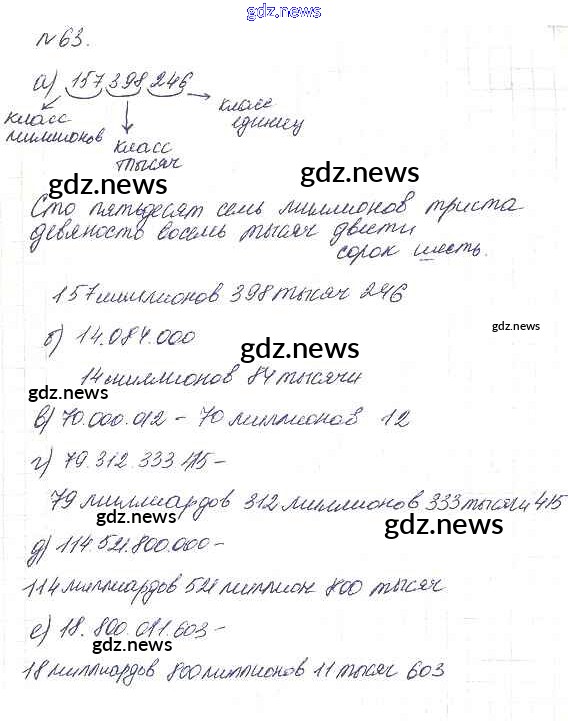 gdz.news
№63.
а) 157 398 246
класс миллионов
класс тысяч
класс единиц
gdz.news
gdz.news
Сто пятьдесят семь миллионов триста
девяносто восемь тысяч двести
сорок шесть.
157 миллионов 398 тысяч 246
gdz.news
б) 14.084.000
gdz.news
14 миллионов 84 тысячи
gdz.news
в) 70.000.012 – 70 миллионов 12
г) 79.312.333.415 –
79 миллиардов 312 миллионов 333 тысячи 415
gdz.news
gdz.news
д) 114.521.800.000 –
114 миллиардов 521 миллион 800 тысяч
е) 18.800.011.603 –
gdz.news
18 миллиардов 800 миллионов 11 тысяч 603